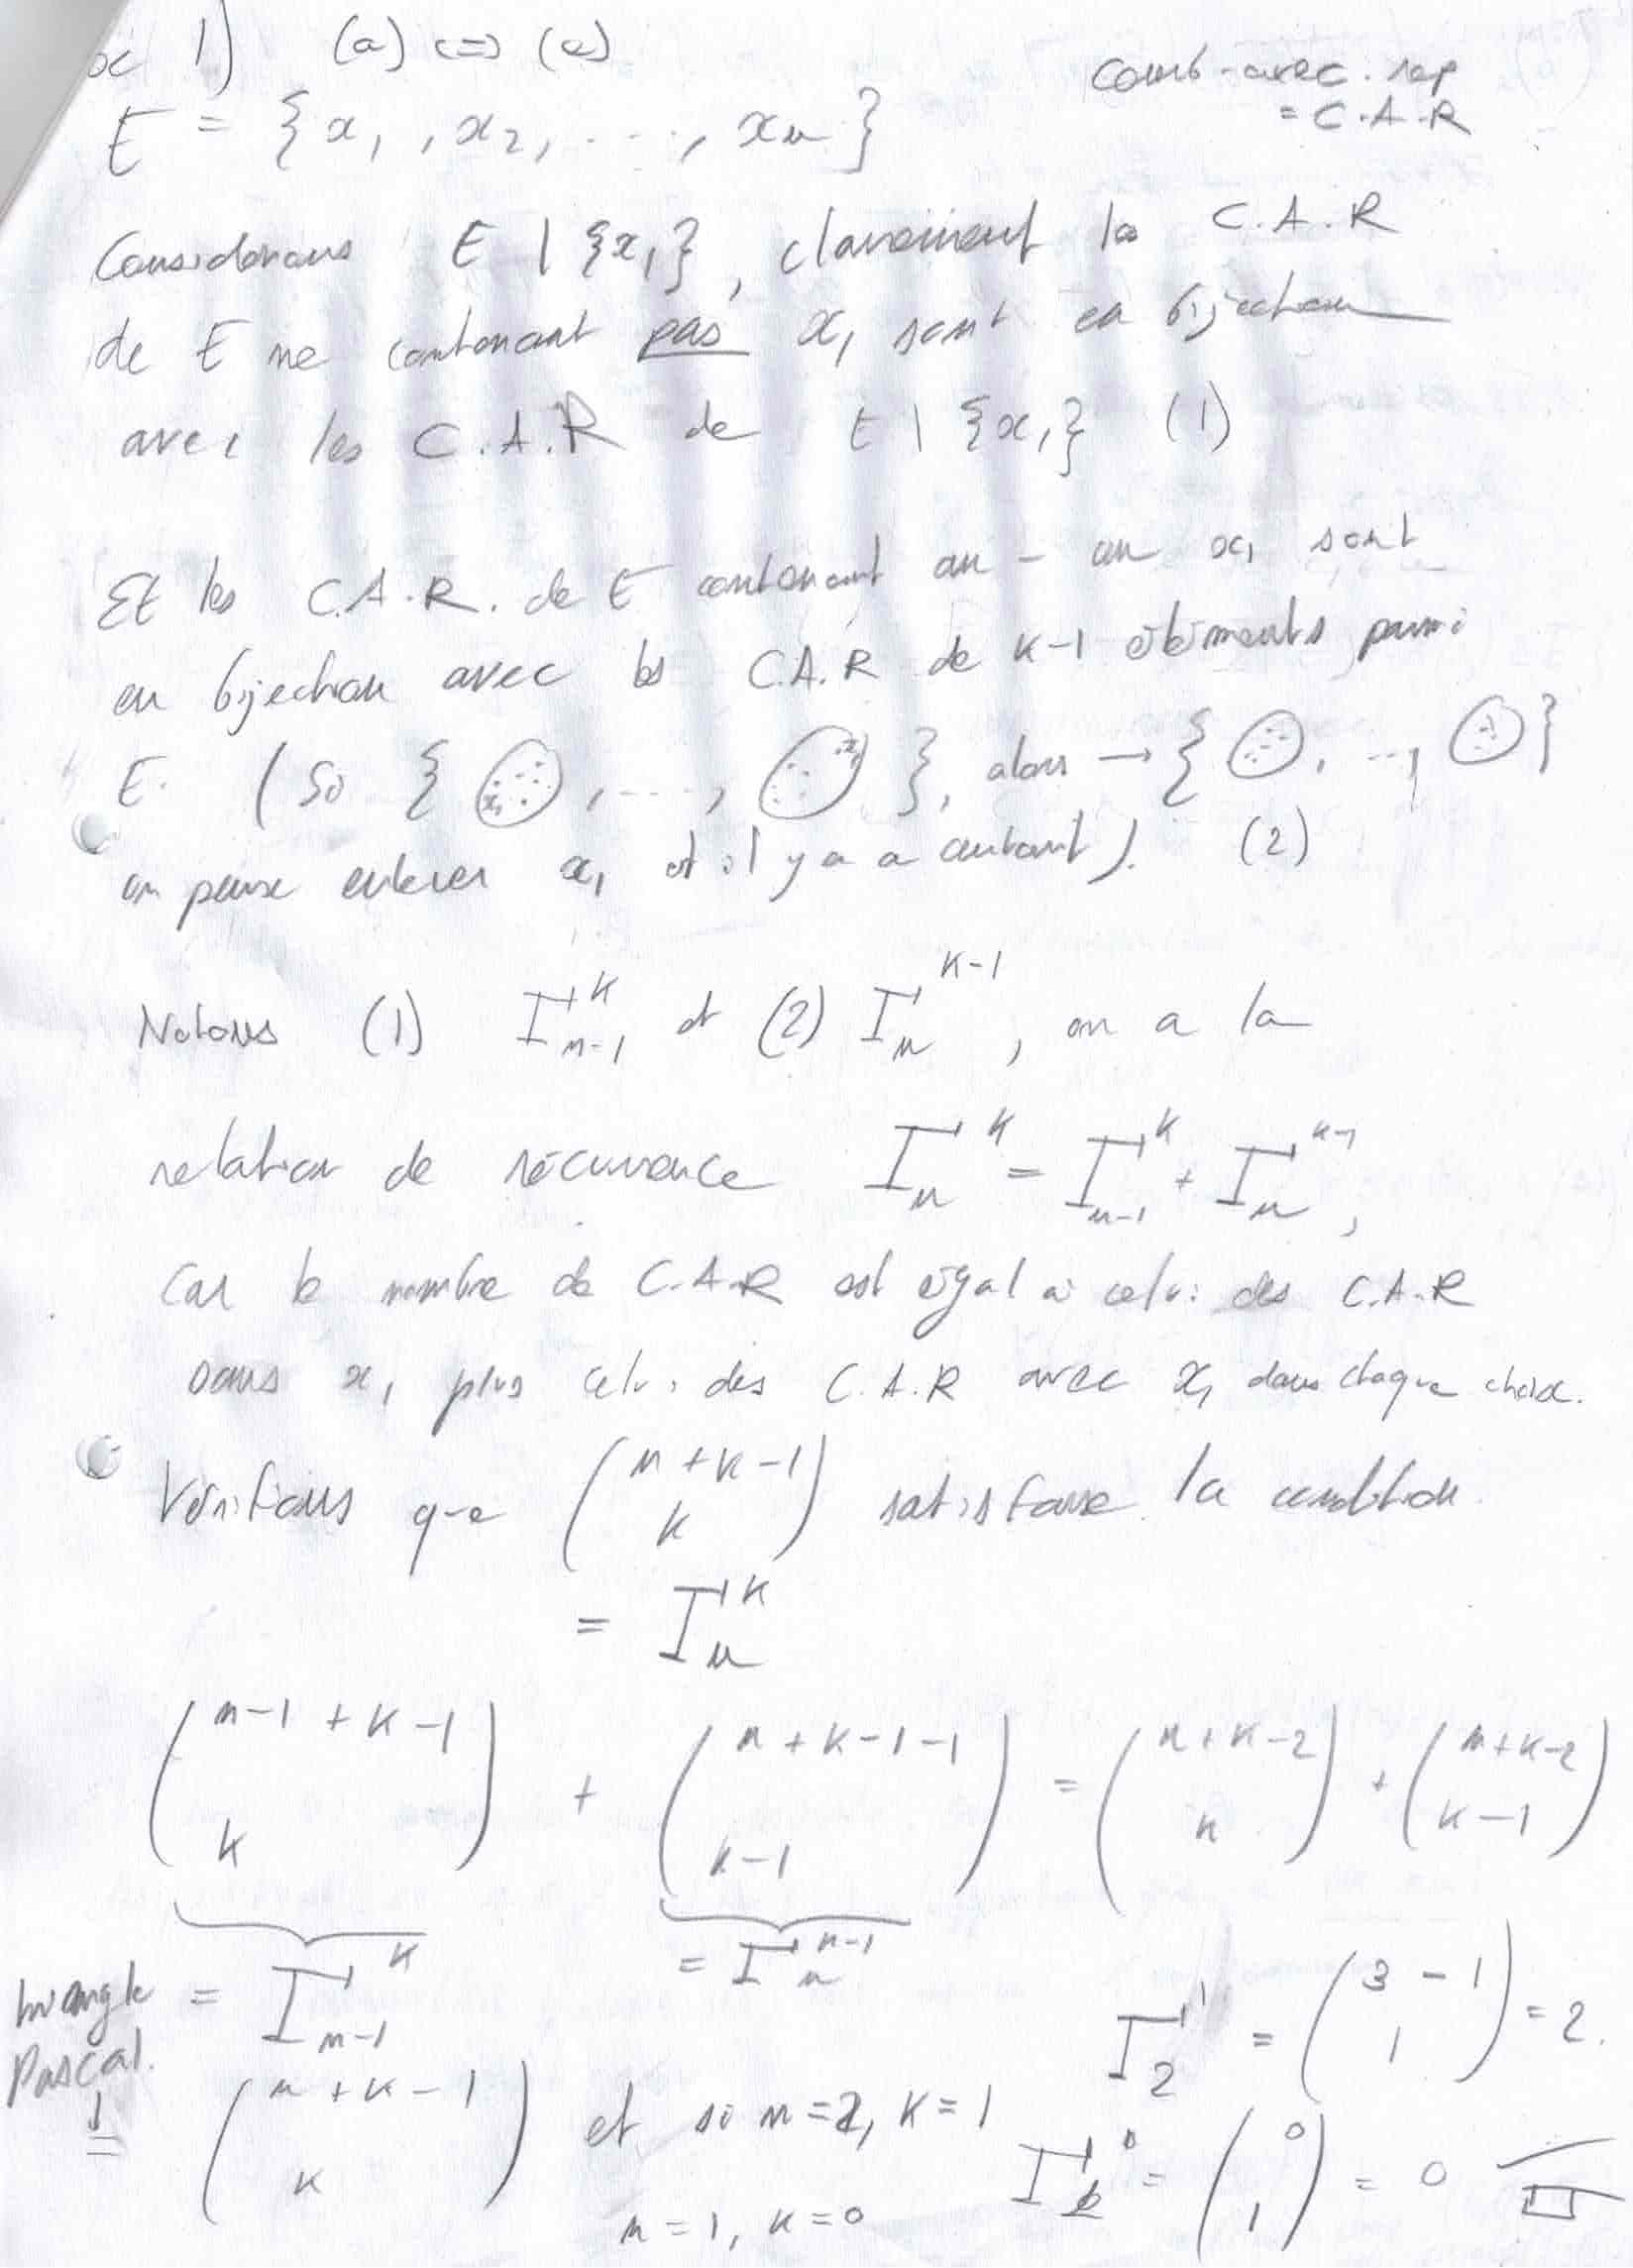 1) (a) <=> (e)
comb-avec.rep
= C.A.R
E = {x₁, x₂, ..., xₙ}
Considérons E \ {x₁}, clairement les C.A.R
de E ne contenant pas x₁ sont en bijection
avec les C.A.R de E \ {x₁} (1)
Et les C.A.R. de E contenant au - un x₁ sont
en bijection avec les C.A.R de k-1 éléments parmi
E. (Si { x₁ , ..., x₁ }, alors → { , ..., }
on peux enlever x₁ et il y a a autant). (2)
Notons (1) Γₙ₋₁ᵏ et (2) Γₙᵏ⁻¹, on a la
relation de récurrence Γₙᵏ = Γₙ₋₁ᵏ + Γₙᵏ⁻¹,
Car le nombre de C.A.R est égal à celui des C.A.R
sans x₁ plus celui des C.A.R avec x₁ dans chaque choix.
Vérifions que (n+k-1 k) satisfasse la condition
= Γₙᵏ
(n-1+k-1 k) + (n+k-1-1 k-1) = (n+k-2 k) + (n+k-2 k-1)
= Γₙ₋₁ᵏ
= Γₙᵏ⁻¹
triangle
Pascal.
↓
=
(n+k-1 k) et si n=2, k=1
Γ₂¹ = (3-1 1) = 2.
n=1, k=0
= (0 1) = 0 □